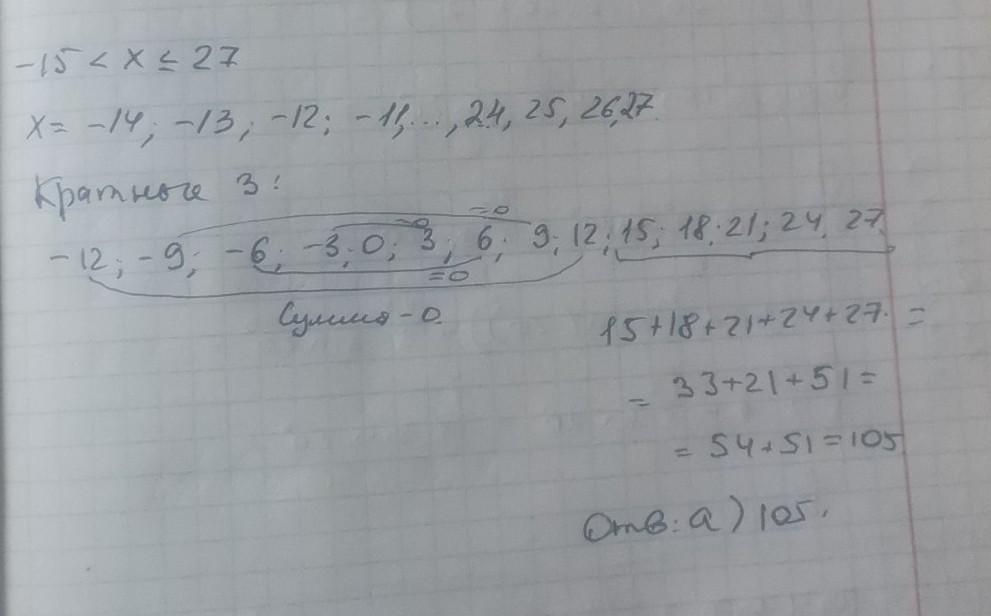 -15 < x ≤ 27
x = -14; -13; -12; -11, ..., 24, 25, 26, 27.
Кратные 3:
=0 =0
-12; -9; -6; -3, 0; 3; 6; 9; 12; 15; 18; 21; 24, 27
=0
Сумма - 0.
15+18+21+24+27. =
= 33+21+51=
= 54+51=105
Отв: а) 105.